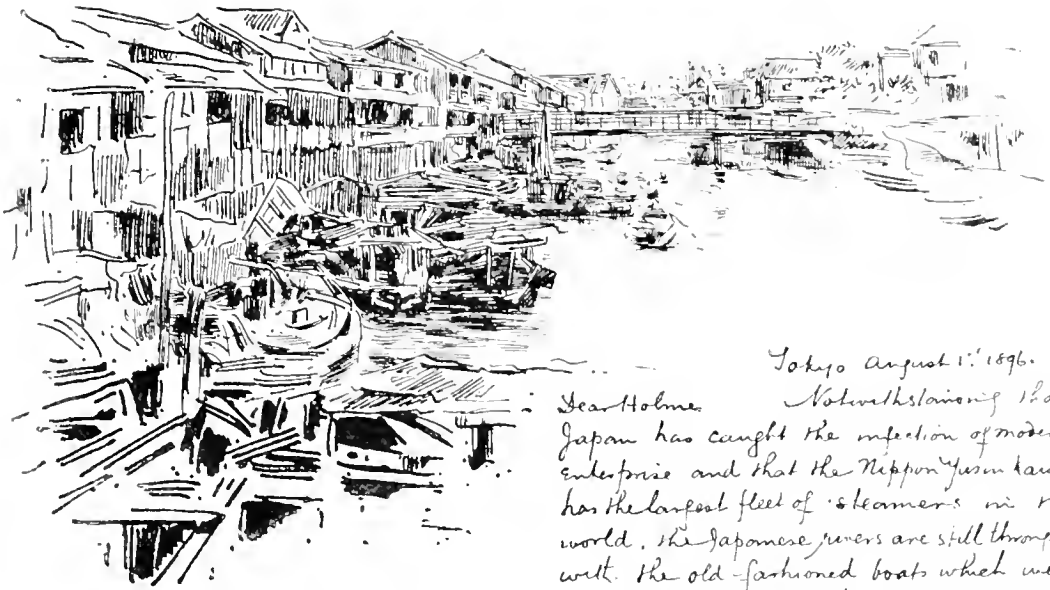 Tokyo August 1st 1896.
Dear Holme Notwithstanding tha
Japan has caught the infection of moder
Enterprise and that the Nippon Yusen Kai
has the largest fleet of steamers in
world, the Japanese rivers are still throng
with the old-fashioned boats which we